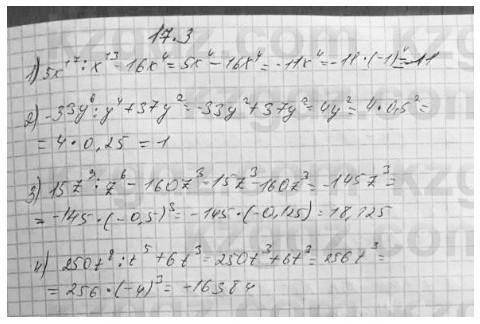 17.3
1) 5x¹⁷ : x¹³ - 16x⁴ = 5x⁴ - 16x⁴ = -11x⁴ = -11 · (-1)⁴ = -11
2) -33y⁶ : y⁴ + 37y² = -33y² + 37y² = 4y² = 4 · 0,5² =
= 4 · 0,25 = 1
3) 15z⁹ : z⁶ - 160z³ = 15z³ - 160z³ = -145z³ =
= -145 · (-0,5)³ = -145 · (-0,125) = 18,125
4) 250t⁸ : t⁵ + 6t³ = 250t³ + 6t³ = 256t³ =
= 256 · (-4)³ = -16384